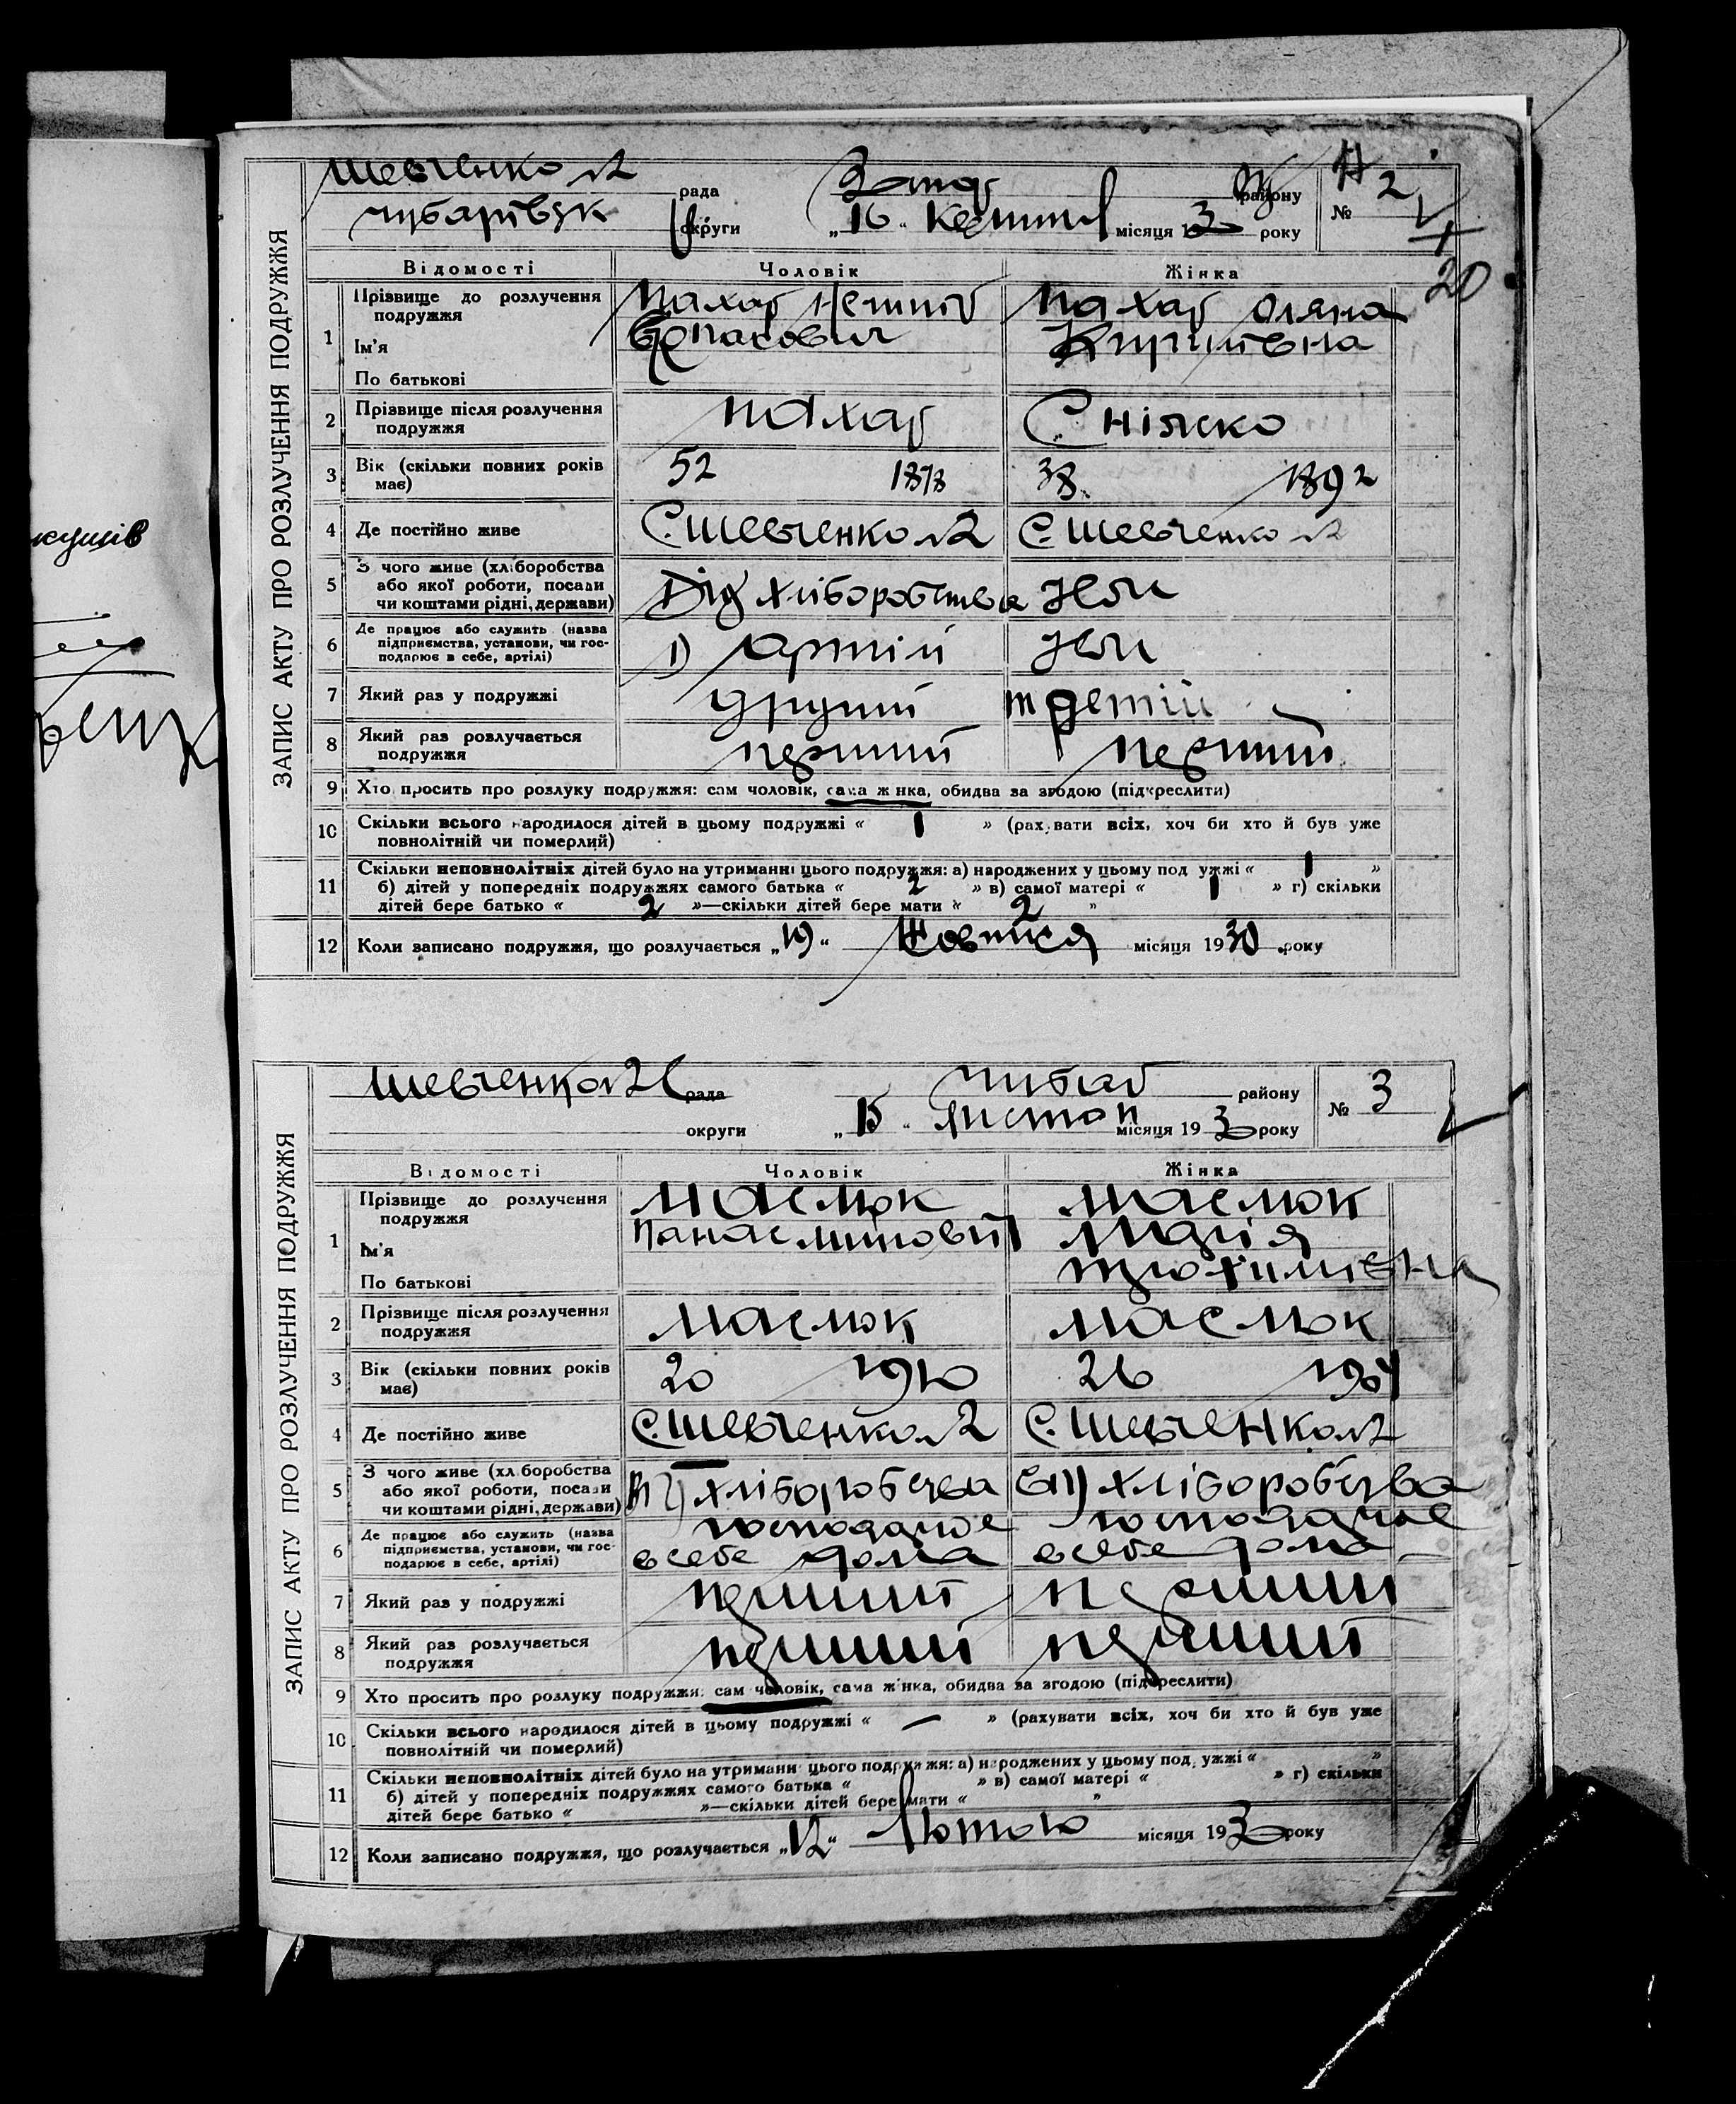 кущів
ЗАПИС АКТУ ПРО РОЗЛУЧЕННЯ ПОДРУЖЖЯ
Шевченко №2 рада району № 2
округи „16“ місяця 193 року
20
Відомості Чоловік Жінка
1 Прізвище до розлучення подружжя Пахар Пахар Оляна
Ім'я Кирилівна
По батькові
2 Прізвище після розлучення подружжя Пахар
3 Вік (скільки повних років має) 52 1878 38 1892
4 Де постійно живе С. Шевченко №2 С. Шевченко №2
5 З чого живе (хліборобства або якої роботи, посади чи коштами рідні, держави) Від хліборобства
6 Де працює або служить (назва підприємства, установи, чи господарює в себе, артілі) 1) Артілі
7 Який раз у подружжі другий третій
8 Який раз розлучається подружжя перший перший
9 Хто просить про розлуку подружжя: сам чоловік, сама жінка, обидва за згодою (підкреслити)
10 Скільки всього народилося дітей в цьому подружжі « 1 » (рахувати всіх, хоч би хто й був уже
повнолітній чи померлий)
11 Скільки неповнолітніх дітей було на утриманні цього подружжя: а) народжених у цьому подружжі « 1 »
б) дітей у попередніх подружжях самого батька « 2 » в) самої матері « 1 » г) скільки
дітей бере батько « 2 »—скільки дітей бере мати « 2 »
12 Коли записано подружжя, що розлучається „19“ Жовтня місяця 1930 року
ЗАПИС АКТУ ПРО РОЗЛУЧЕННЯ ПОДРУЖЖЯ
Шевченко №2 рада району № 3
округи „15“ Листоп місяця 193 року
Відомості Чоловік Жінка
1 Прізвище до розлучення подружжя Маслюк Маслюк
Ім'я Панас Марія
По батькові Трохимівна
2 Прізвище після розлучення подружжя Маслюк Маслюк
3 Вік (скільки повних років має) 20 1910 26 1904
4 Де постійно живе С. Шевченко №2 С. Шевченко №2
5 З чого живе (хліборобства або якої роботи, посади чи коштами рідні, держави) хліборобства хліборобства
6 Де працює або служить (назва підприємства, установи, чи господарює в себе, артілі) господарює в себе дома господарює в себе дома
7 Який раз у подружжі перший перший
8 Який раз розлучається подружжя перший перший
9 Хто просить про розлуку подружжя: сам чоловік, сама жінка, обидва за згодою (підкреслити)
10 Скільки всього народилося дітей в цьому подружжі « — » (рахувати всіх, хоч би хто й був уже
повнолітній чи померлий)
11 Скільки неповнолітніх дітей було на утриманні цього подружжя: а) народжених у цьому подружжі « »
б) дітей у попередніх подружжях самого батька « » в) самої матері « » г) скільки
дітей бере батько « »—скільки дітей бере мати « »
12 Коли записано подружжя, що розлучається „12“ Лютого місяця 193 року